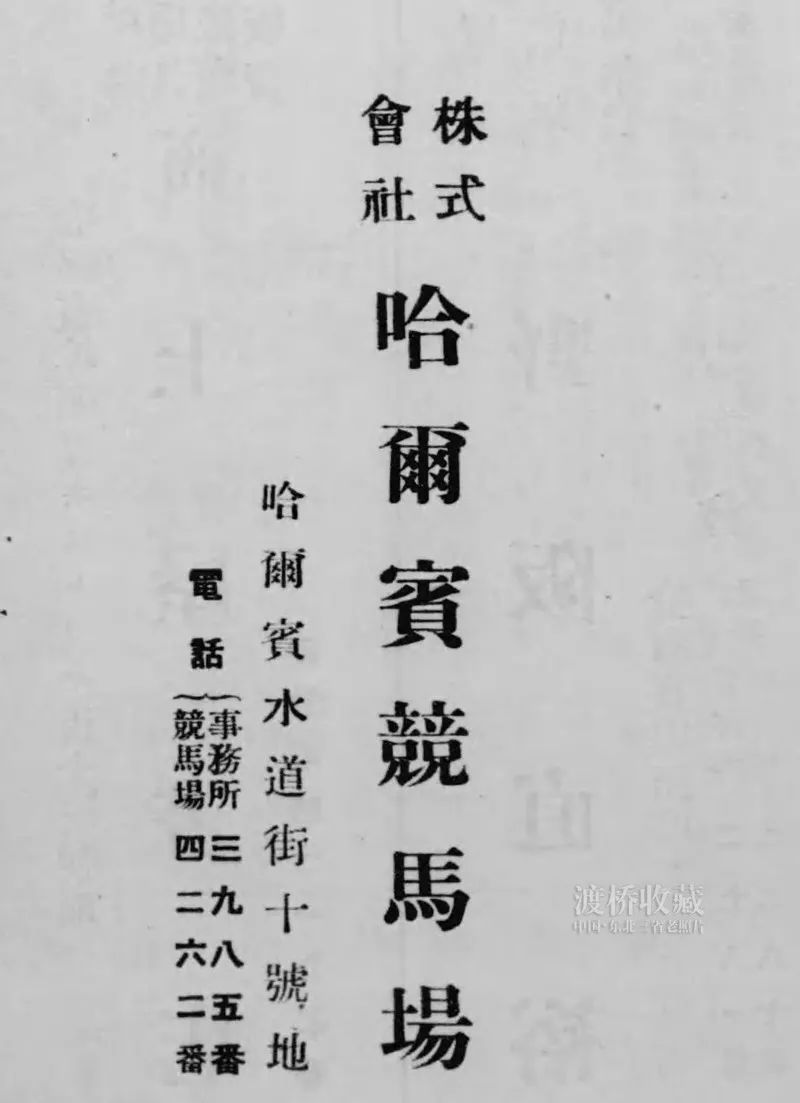 株式
會社
哈爾賓競馬場
哈爾賓水道街十號地
電話
事務所三九八五番
競馬場四二六二番
渡桥收藏
中国·东北三省老照片